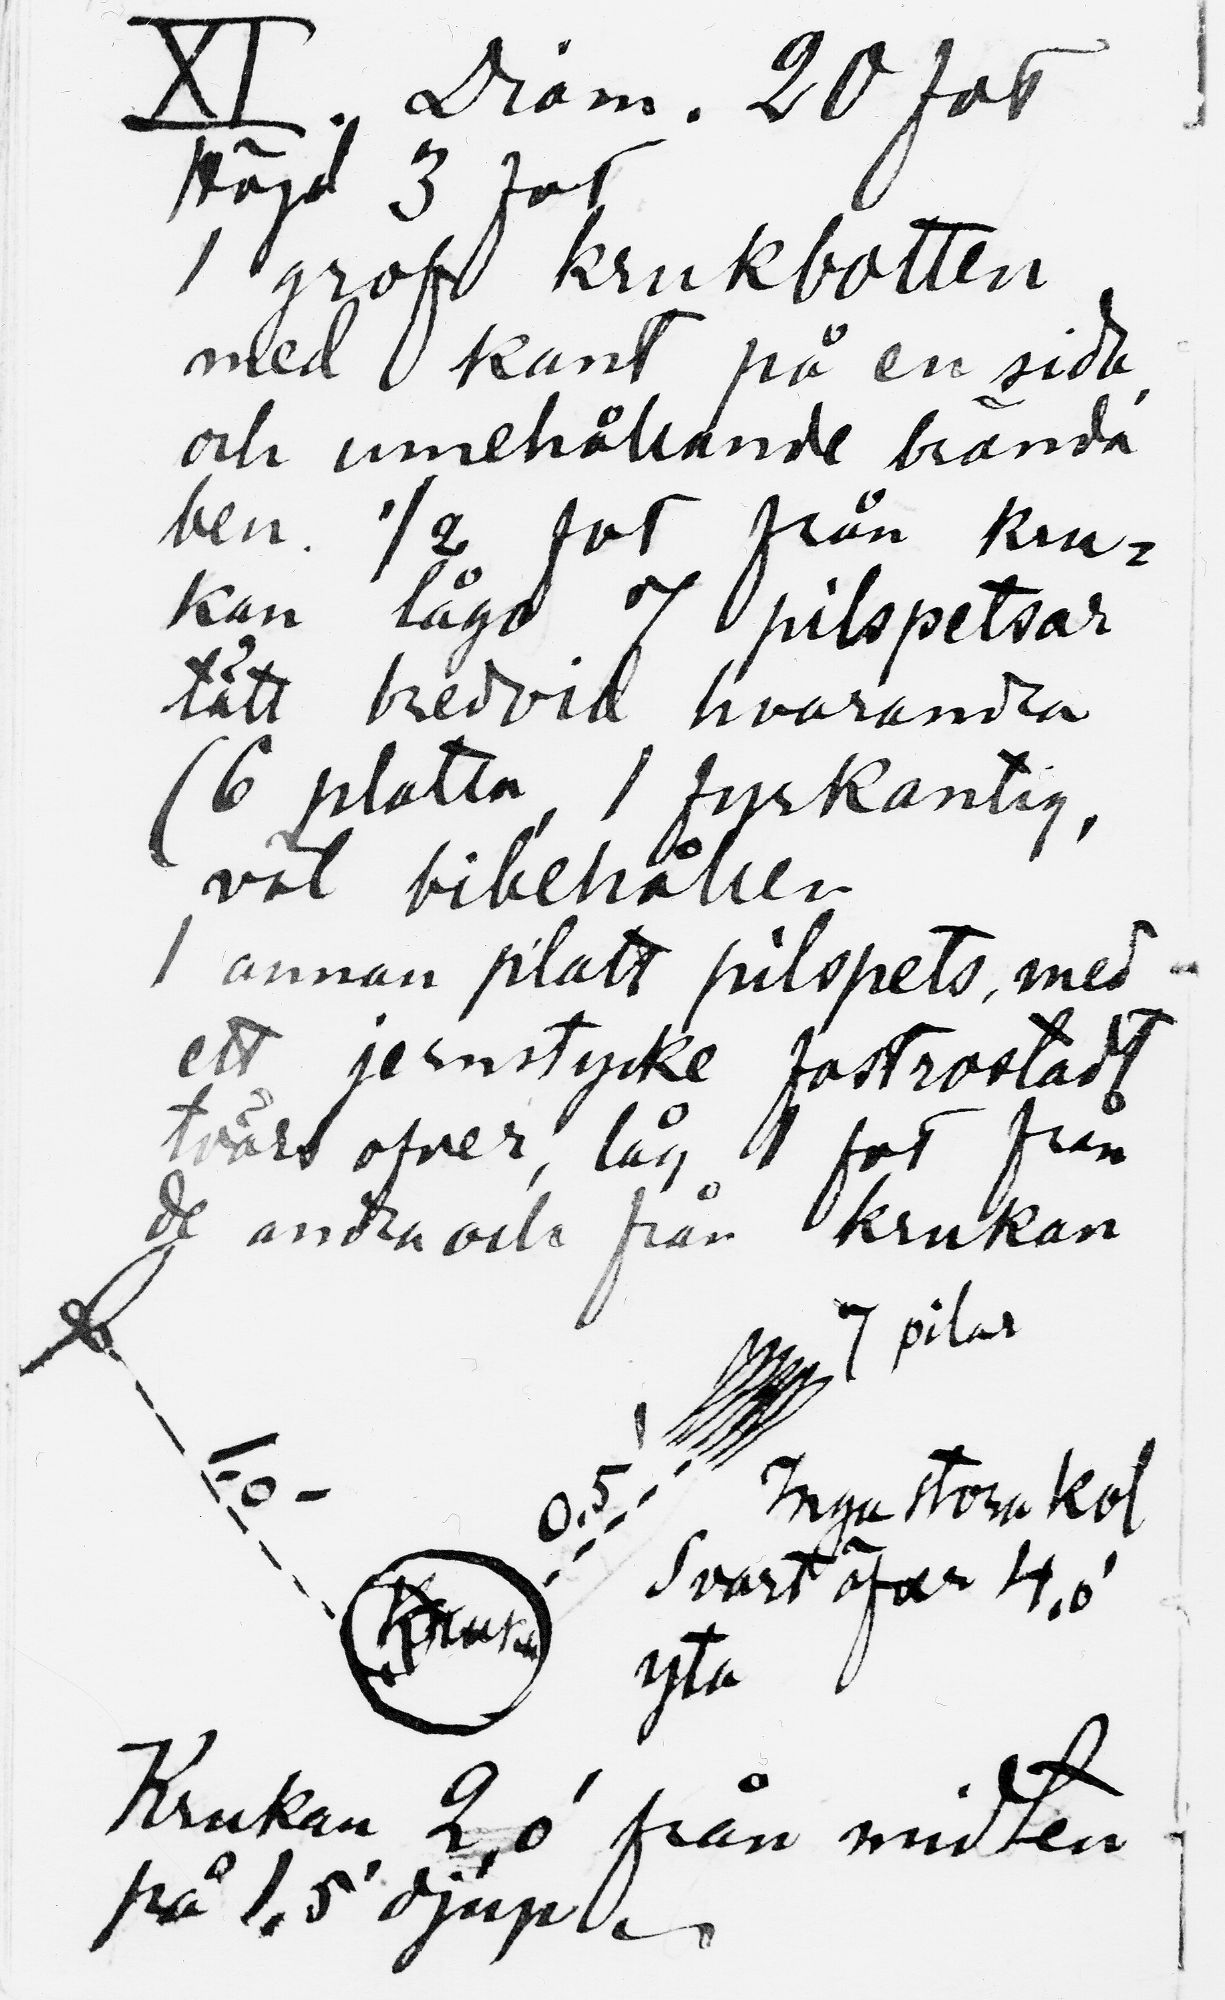 XI. Diam. 20 fot
Höjd 3 fot
1 grof krukbotten
med kant på en sida,
och innehållande brända
ben. 1/2 fot från kru=
kan lågo 7 pilspetsar
tätt bredvid hvarandra
(6 platta, 1 fyrkantig,
väl bibehållen
1 annan platt pilspets, med
ett jernstycke fastrostadt
tvärs öfver, låg 1 fot från
de andra och från krukan
7 pilar
1.0
0.5'
Inga stora kol
Svart öfver 4,0'
yta
Kruka
Krukan 2,0' från midten
på 1,5' djup